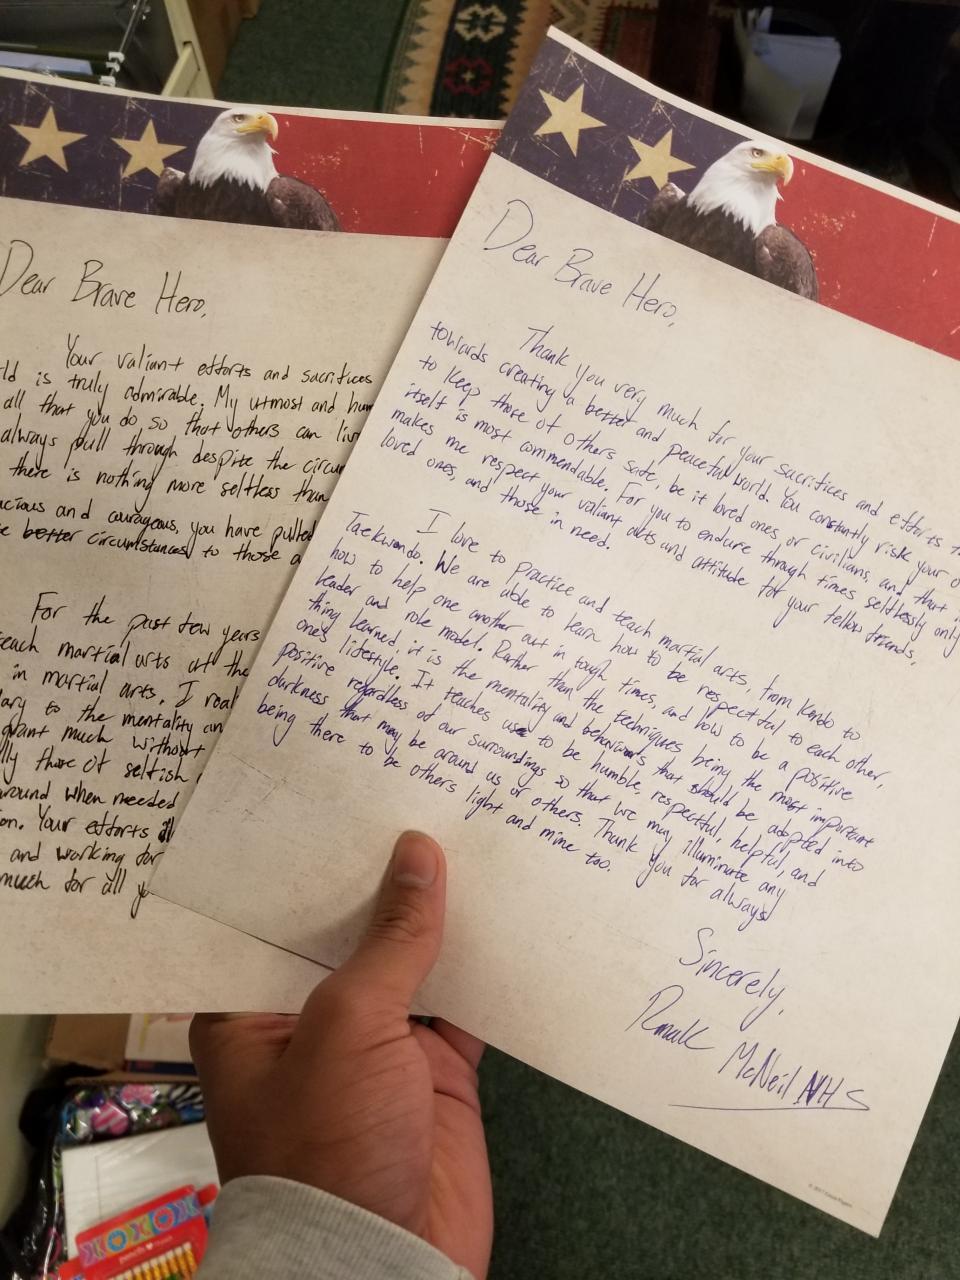 Dear Brave Hero,
Your valiant efforts and sacrifices
is truly admirable. My utmost and
all that you do so that others can
always pull through despite the
there is nothing more selfless than
and courageous, you have pulled
better circumstances to those
For the past few years
teach martial arts at the
in martial arts. I
to the mentality
much without
those of selfish
around when needed
Your efforts
and working for
much for all
Dear Brave Hero,
Thank you very much for your sacrifices and efforts
towards creating a better and peaceful world. You constantly risk your
to keep those of others safe, be it loved ones or civilians, and that
itself is most commendable. For you to endure through times selflessly only
makes me respect your valiant acts and attitude for your fellow friends,
loved ones, and those in need.
I love to practice and teach martial arts, from Kendo to
Taekwondo. We are able to learn how to be respectful to each other,
how to help one another out in tough times, and how to be a positive
leader and role model. Rather than the techniques being the most important
thing learned, it is the mentality and behaviours that should be adopted into
one's lifestyle. It teaches us to be humble, respectful, helpful, and
positive regardless of our surroundings so that we may illuminate any
darkness that may be around us or others. Thank you for always
being there to be others light and mine too.
Sincerely,
McNeil NHS